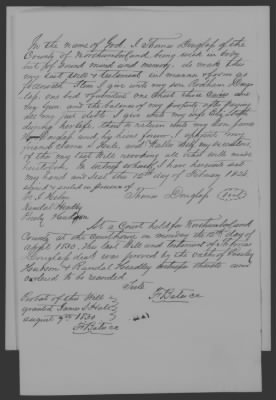 In the name of God, I Thomas Douglass of the
County of Northumberland, being weak in body
but of sound mind and memory, do make this
my last will & testament in manner & form as
followeth. Item I give unto my son
one bed & furniture one Chest three
my Gun and the balance of my property after paying
all my just debts I give unto my wife
during her life. Then to return unto my son
and his heirs forever. I appoint my
friend James S. Hale, and
of this my last will revoking all other wills made
heretofore. In witness whereof, I have hereunto set
my hand and seal the 15th day of February 1824
signed & sealed in presence of
Thomas Douglass Seal
Randall Headley
Presley Hudson
At a Court held for Northumberland
County at the courthouse on monday the 12th day of
April 1830. This last Will and testament of Thomas
Douglass dec'd was proved by the oaths of Presley
Hudson & Randal Headley witnesses thereto and
ordered to be recorded
Teste
Probat of this Will
granted James S. Hale
August 9th 1830